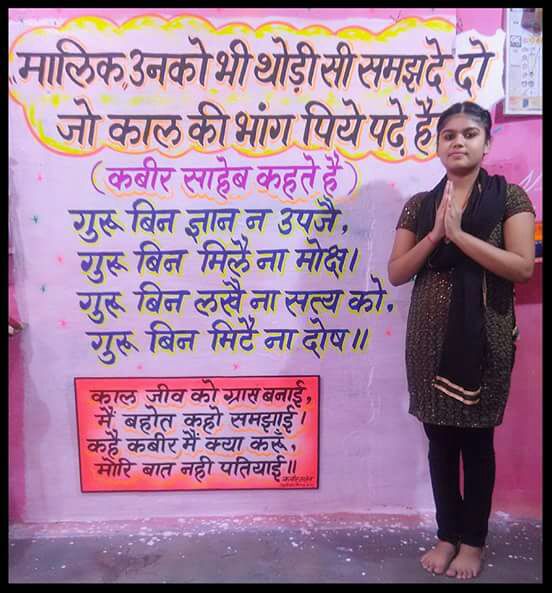 मालिक उनको भी थोड़ी सी समझ दे दो
जो काल की भांग पिये पदे है
(कबीर साहेब कहते है)
गुरू बिन ज्ञान न उपजै,
गुरू बिन मिलै ना मोक्ष।
गुरू बिन लखै ना सत्य को,
गुरू बिन मिटै ना दोष॥
काल जीव को ग्रास बनाई,
मैं बहोत कहो समझाई।
कहै कबीर मैं क्या करूँ,
मोरि बात नही पतियाई॥